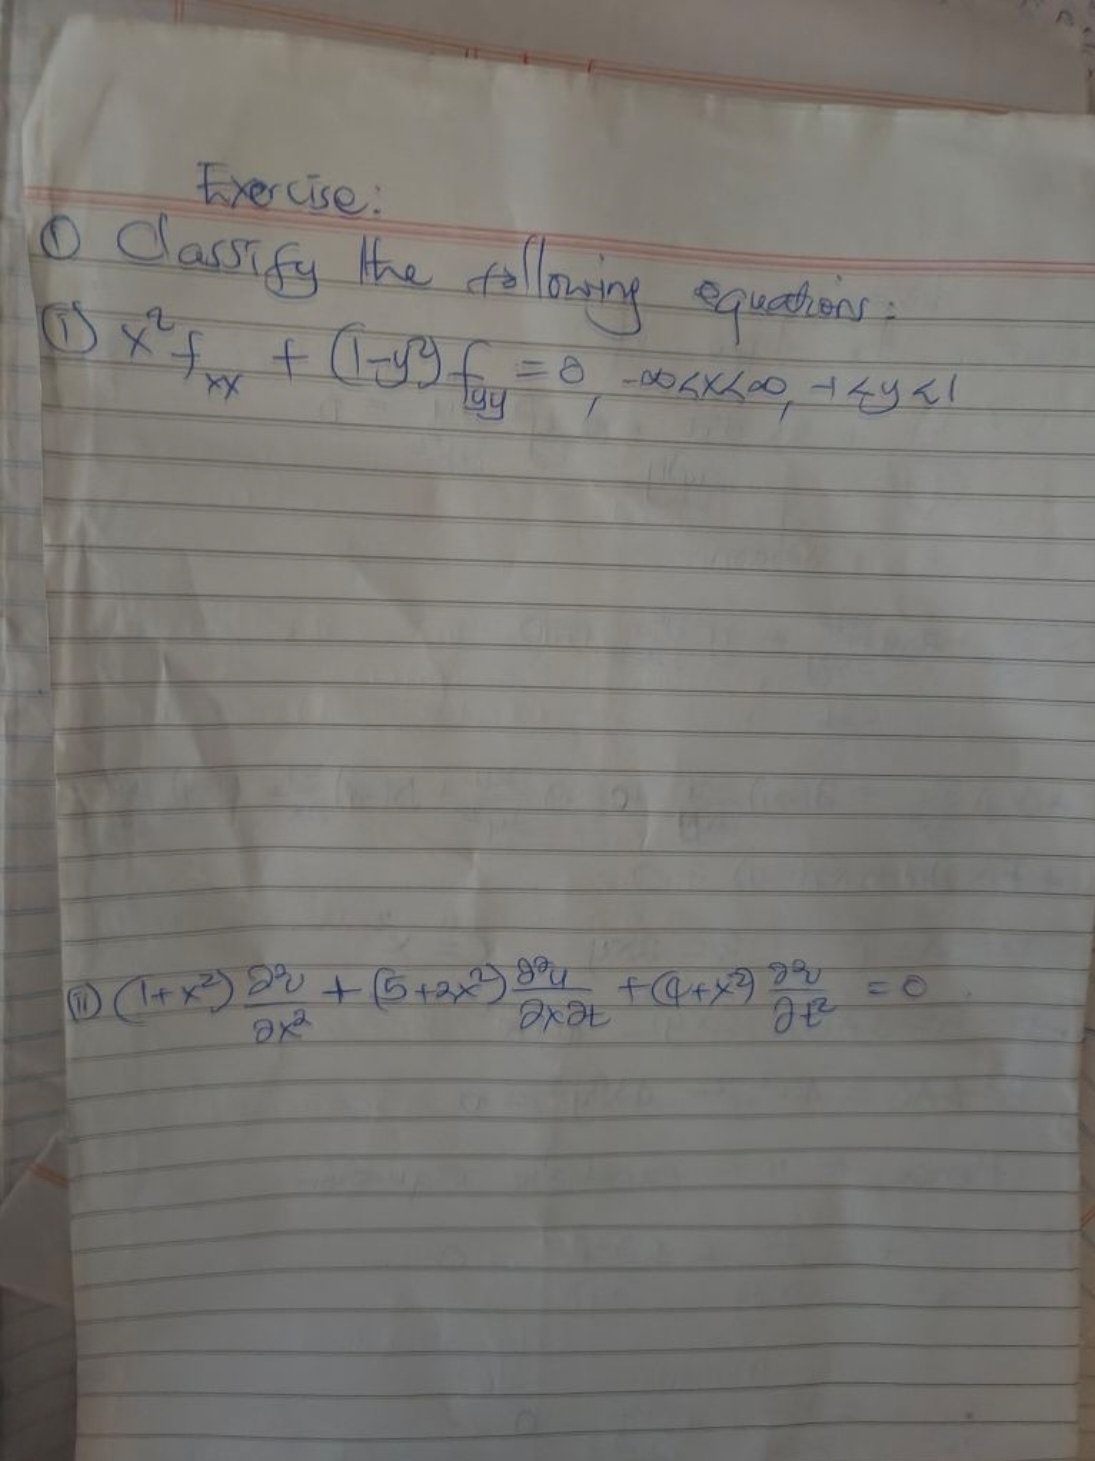 Exercise:
① Classify the following equations:
(i) x² f_xx + (1-y²) f_yy = 0, -∞<x<∞, -1<y<1
(ii) (1+x²) ∂²u/∂x² + (5+2x²) ∂²u/∂x∂t + (4+x²) ∂²u/∂t² = 0